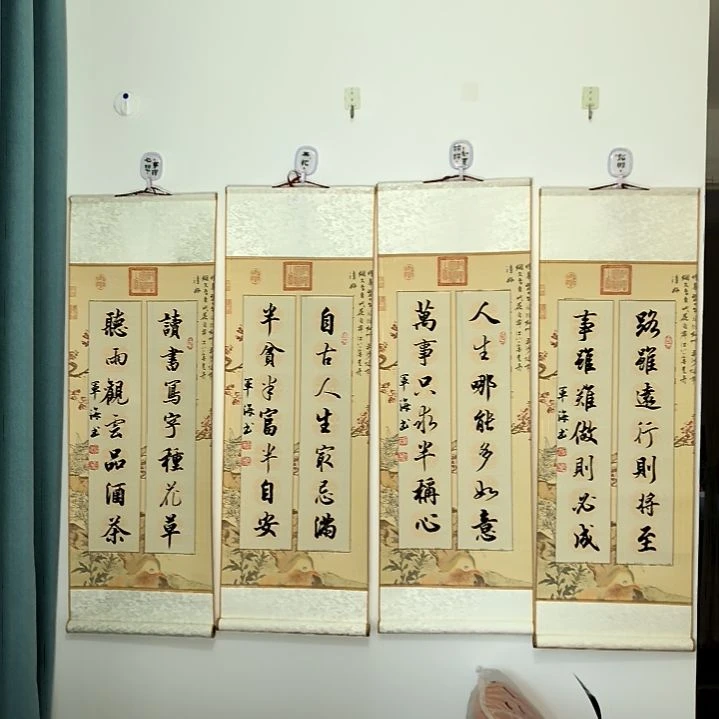 路雖遠行則將至
事雖難做則必成
軍海書
人生哪能多如意
萬事只求半稱心
軍海書
自古人生最忌滿
半貧半富半自安
軍海書
讀書寫字種花草
聽雨觀雲品酒茶
軍海書